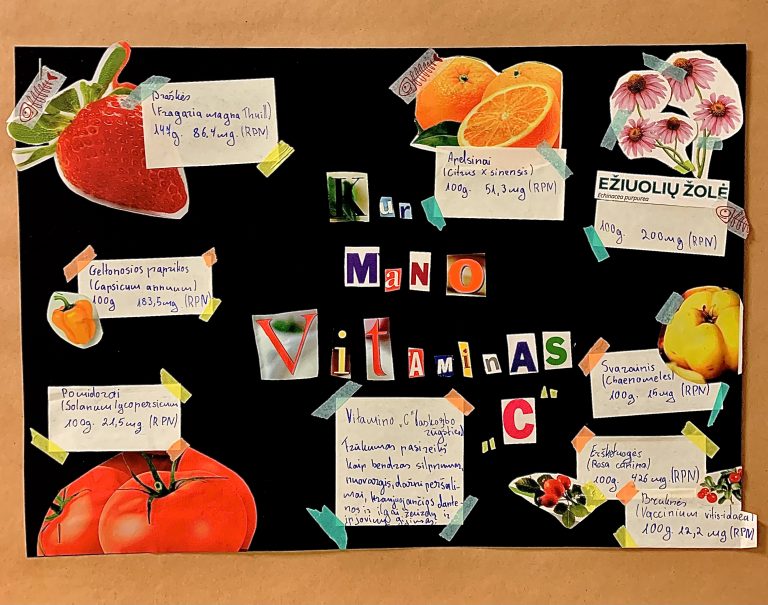 Braškės
(Fragaria magna Thuill)
147g. 86.4mg. (RPN)
Apelsinai
(Citrus x sinensis)
100g. 51,3mg (RPN)
EŽIUOLIŲ ŽOLĖ
Echinacea purpurea
100g. 200mg (RPN)
Kur
MaNO
VitaminAS
„C“
Geltonosios paprikos
(Capsicum annuum)
100g 183,5mg (RPN)
Svarainis
(Chaenomeles)
100g. 15mg (RPN)
Pomidorai
(Solanum lycopersicum
100g. 21,5mg (RPN)
Vitamino „C“ (askorbo
rūgšties)
Trūkumas pasireiškia
kaip bendras silpnumas,
nuovargis, dažni peršali-
mai, kraujuojančios dante-
nos ir ilgai žaizdų ir
Erškėtuogės
(Rosa canina)
100g. 426mg. (RPN)
Bruknės
(Vaccinium vitis-idaea)
100g. 12,2mg (RPN)